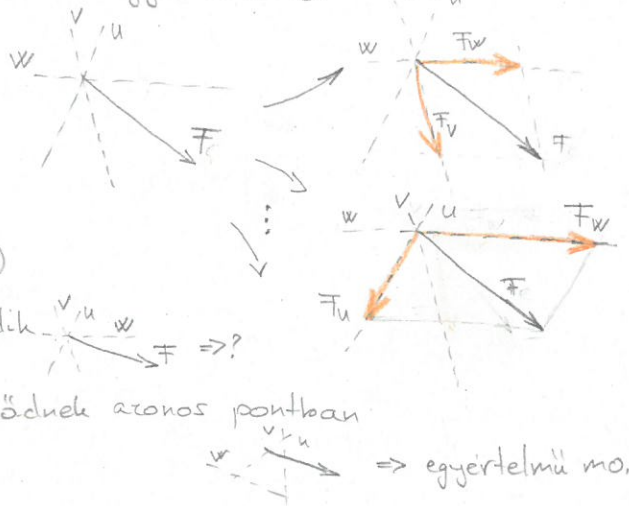 v u
w
F
w
Fw
Fv
F
v u
w
Fw
F
Fu
v u w
F => ?
ődnek azonos pontban
v u
w
=> egyértelmű mo.